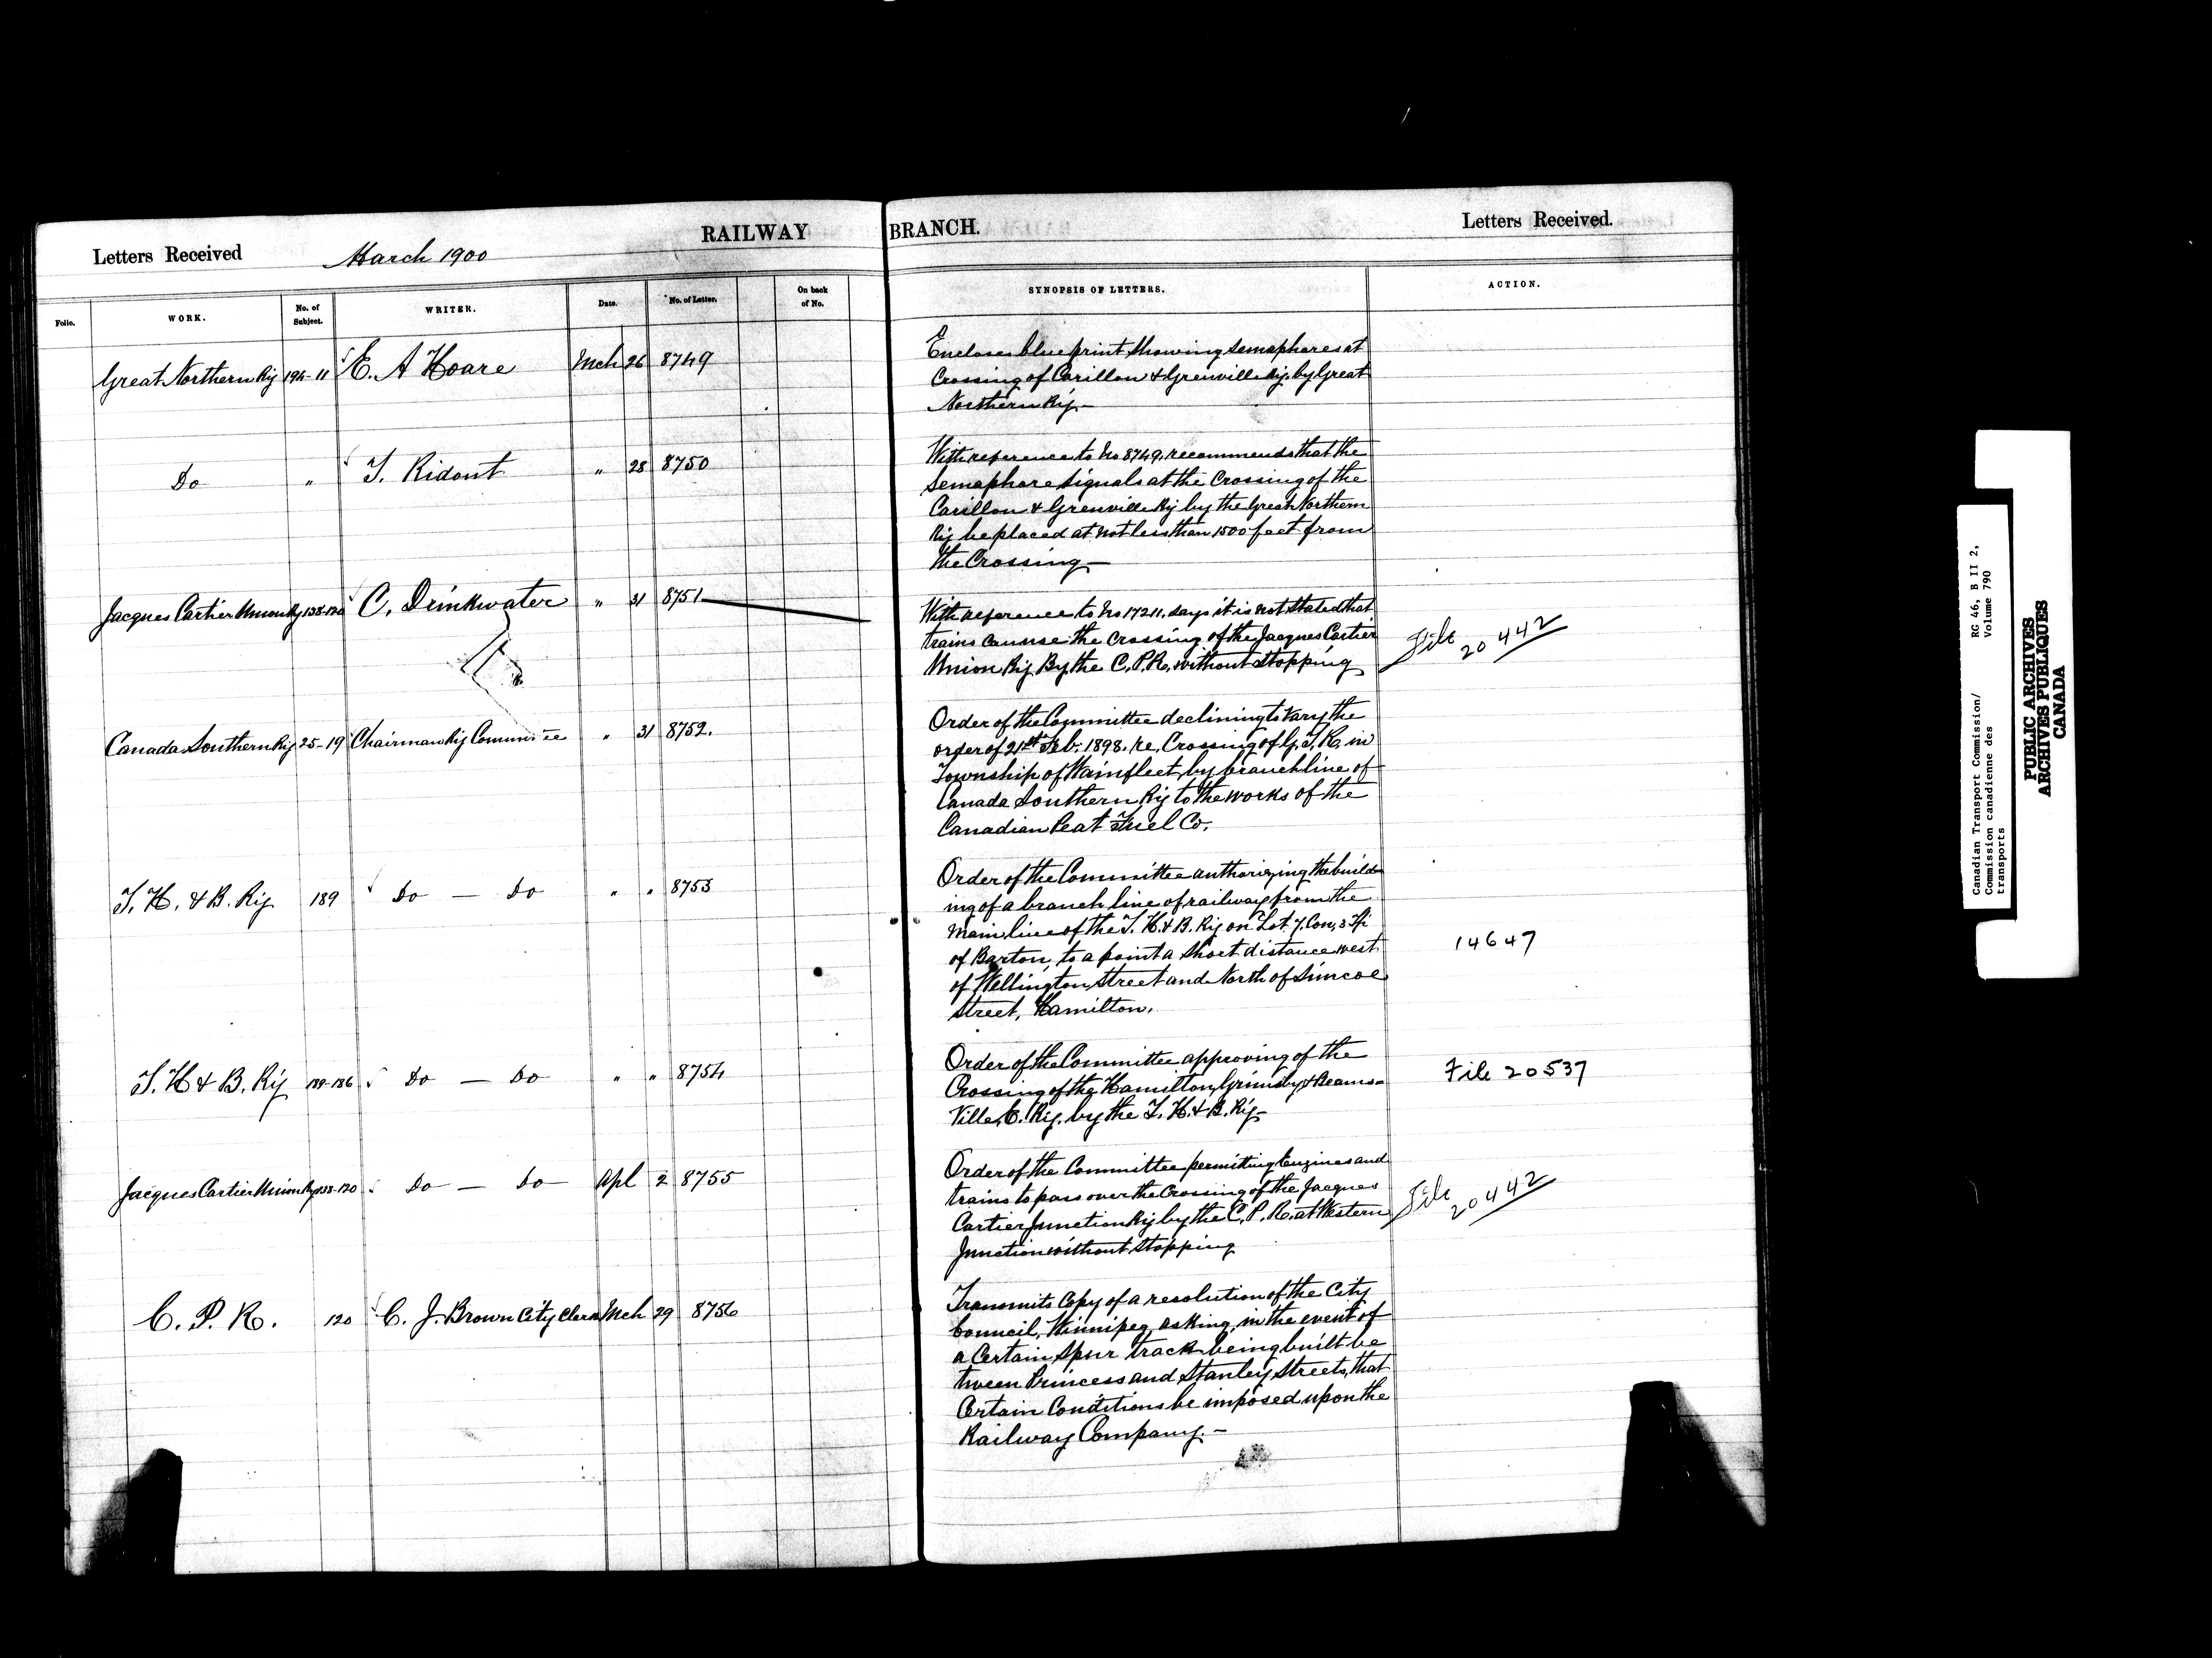 RAILWAY BRANCH.
Letters Received March 1900 Letters Received.
Folio. WORK. No. of Subject. WRITER. Date. No. of Letter. On back of No. SYNOPSIS OF LETTERS. ACTION.
Great Northern Ry 194-11 E. A Hoare Mch 26 8749
Encloses blue print showing semaphores at
Crossing of Carillon & Grenville Ry. by Great
Northern Ry—
Do " T. Ridout " 28 8750
With reference to No 8749, recommends that the
Semaphore signals at the Crossing of the
Carillon & Grenville Ry by the Great Northern
Ry be placed at not less than 1500 feet from
the Crossing—
Jacques Cartier Union Ry 138-120 C. Drinkwater " 31 8751
With reference to No 17211, says it is not stated that
trains can use the Crossing of the Jacques Cartier
Union Ry By the C. P. R. without Stopping
File 20442
Canada Southern Ry 25-19 Chairman Ry Committee " 31 8752.
Order of the Committee declining to vary the
order of 21st Feb. 1898. re. Crossing of G. T. R. in
Township of Wainfleet, by branch line of
Canada Southern Ry to the works of the
Canadian Peat Fuel Co.
T. H. & B. Ry 189 Do — Do " " 8753
Order of the Committee authorizing the build-
ing of a branch line of railway from the
main line of the T. H. & B. Ry on Lot 7. Con, 3 Tp
of Barton, to a point a Short distance west
of Wellington Street and North of Simcoe
Street, Hamilton.
14647
T. H & B. Ry 189-186 Do — Do " " 8754
Order of the Committee approving of the
Crossing of the Hamilton, Grimsby & Beams-
Ville, E. Ry. by the T. H. & B. Ry—
File 20537
Jacques Cartier Union Ry 138-120 Do — Do Apl 2 8755
Order of the Committee permitting Engines and
trains to pass over the Crossing of the Jacques
Cartier Junction Ry by the C. P. R. at Western
Junction without Stopping
File 20442
C. P. R. 120 C. J. Brown City Clerk Mch 29 8756
Transmits Copy of a resolution of the City
Council, Winnipeg, asking, in the event of
a Certain Spur track being built be
tween Princess and Stanley Streets, that
Certain Conditions be imposed upon the
Railway Company.—
Canadian Transport Commission/ RG 46, B II 2,
Commission canadienne des Volume 790
transports
PUBLIC ARCHIVES
ARCHIVES PUBLIQUES
CANADA